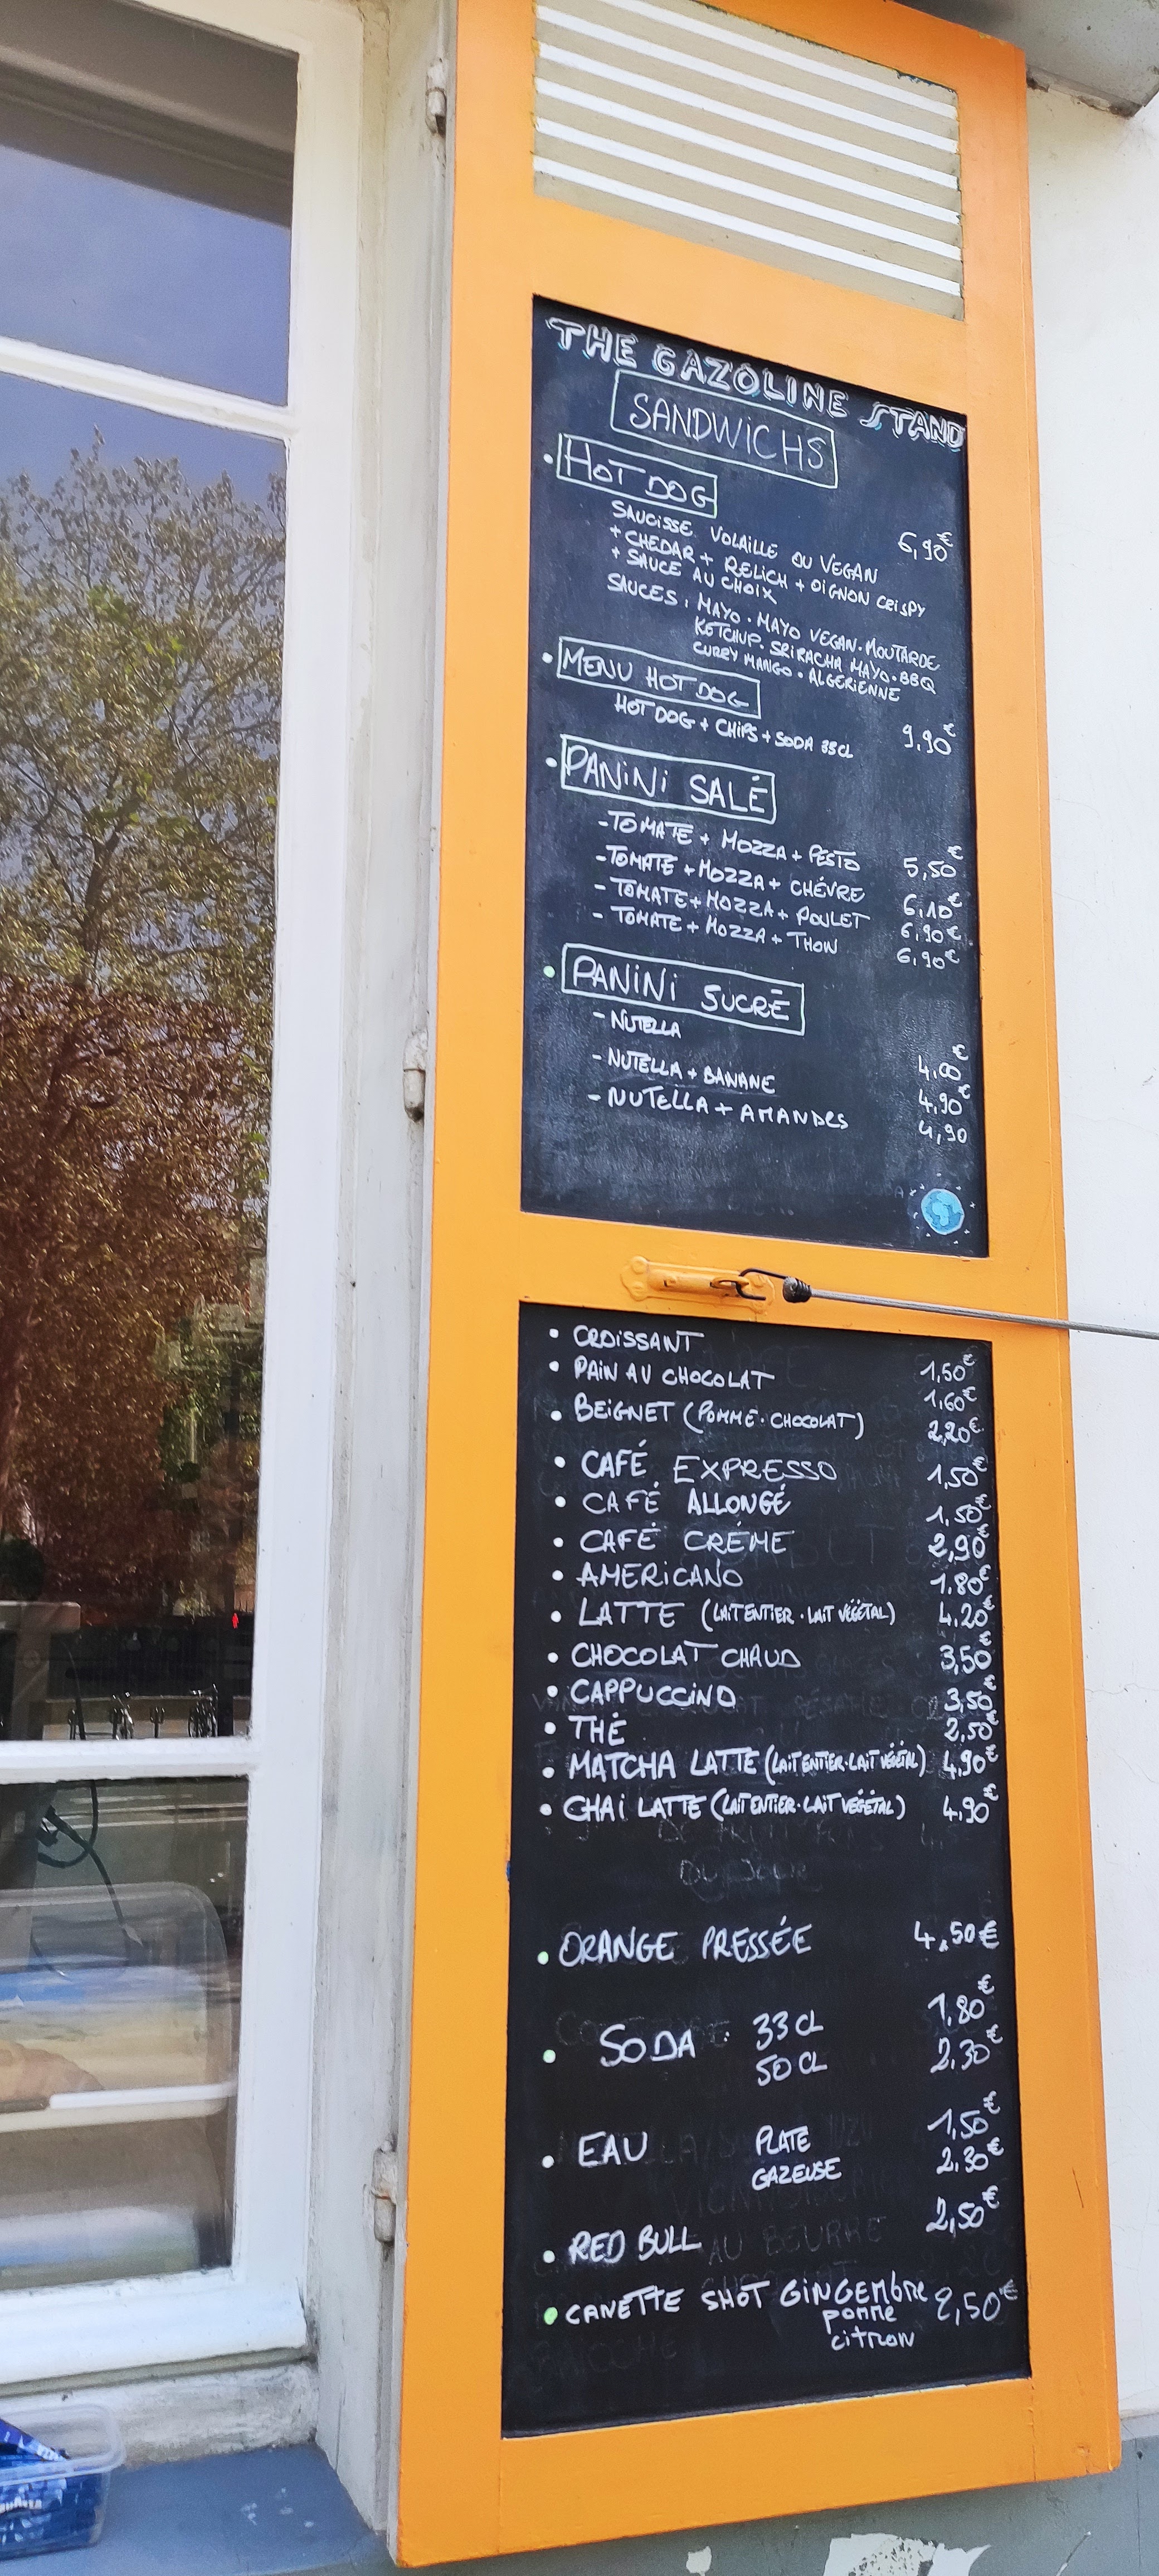 THE GAZOLINE STAND
SANDWICHS
• HOT DOG
SAUCISSE VOLAILLE OU VEGAN 6,90€
+ CHEDAR + RELICH + OIGNON CRISPY
+ SAUCE AU CHOIX
SAUCES : MAYO • MAYO VEGAN • MOUTARDE
KETCHUP • SRIRACHA MAYO • BBQ
CURRY MANGO • ALGERIENNE
• MENU HOT DOG
HOT DOG + CHIPS + SODA 33CL 9,90€
• PANINI SALÉ
- TOMATE + MOZZA + PESTO 5,50€
- TOMATE + MOZZA + CHÉVRE 6,10€
- TOMATE + MOZZA + POULET 6,90€
- TOMATE + MOZZA + THON 6,90€
• PANINI SUCRÉ
- NUTELLA 4,00€
- NUTELLA + BANANE 4,90€
- NUTELLA + AMANDES 4,90
• CROISSANT 1,50€
• PAIN AU CHOCOLAT 1,60€
• BEIGNET (POMME • CHOCOLAT) 2,20€
• CAFÉ EXPRESSO 1,50€
• CAFÉ ALLONGÉ 1,50€
• CAFÉ CRÉME 2,90€
• AMERICANO 1,80€
• LATTE (LAIT ENTIER • LAIT VÉGÉTAL) 4,20€
• CHOCOLAT CHAUD 3,50€
• CAPPUCCINO 3,50€
• THÉ 2,50€
• MATCHA LATTE (LAIT ENTIER • LAIT VÉGÉTAL) 4,90€
• CHAI LATTE (LAIT ENTIER • LAIT VÉGÉTAL) 4,90€
DU JOUR
• ORANGE PRESSÉE 4,50€
• SODA : 33 CL 1,80€
50 CL 2,30€
• EAU PLATE 1,50€
GAZEUSE 2,30€
• RED BULL 2,50€
AU BEURRE
• CANETTE SHOT GINGEMBRE 2,50€
POMME
CITRON